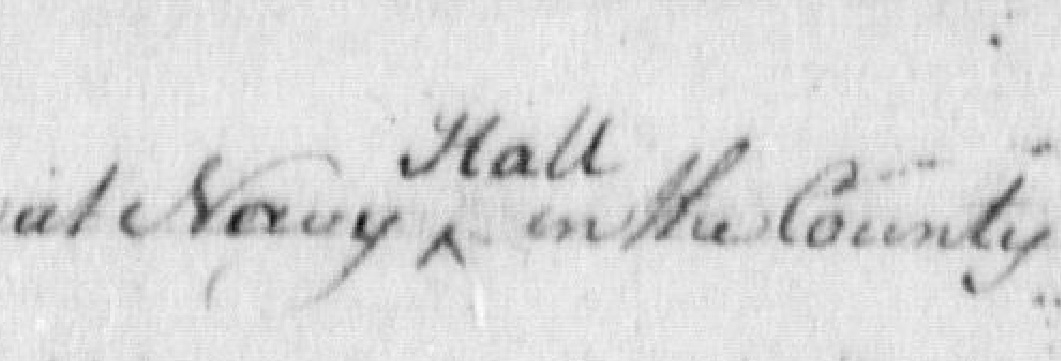 Hall
at Navy ^ in the County